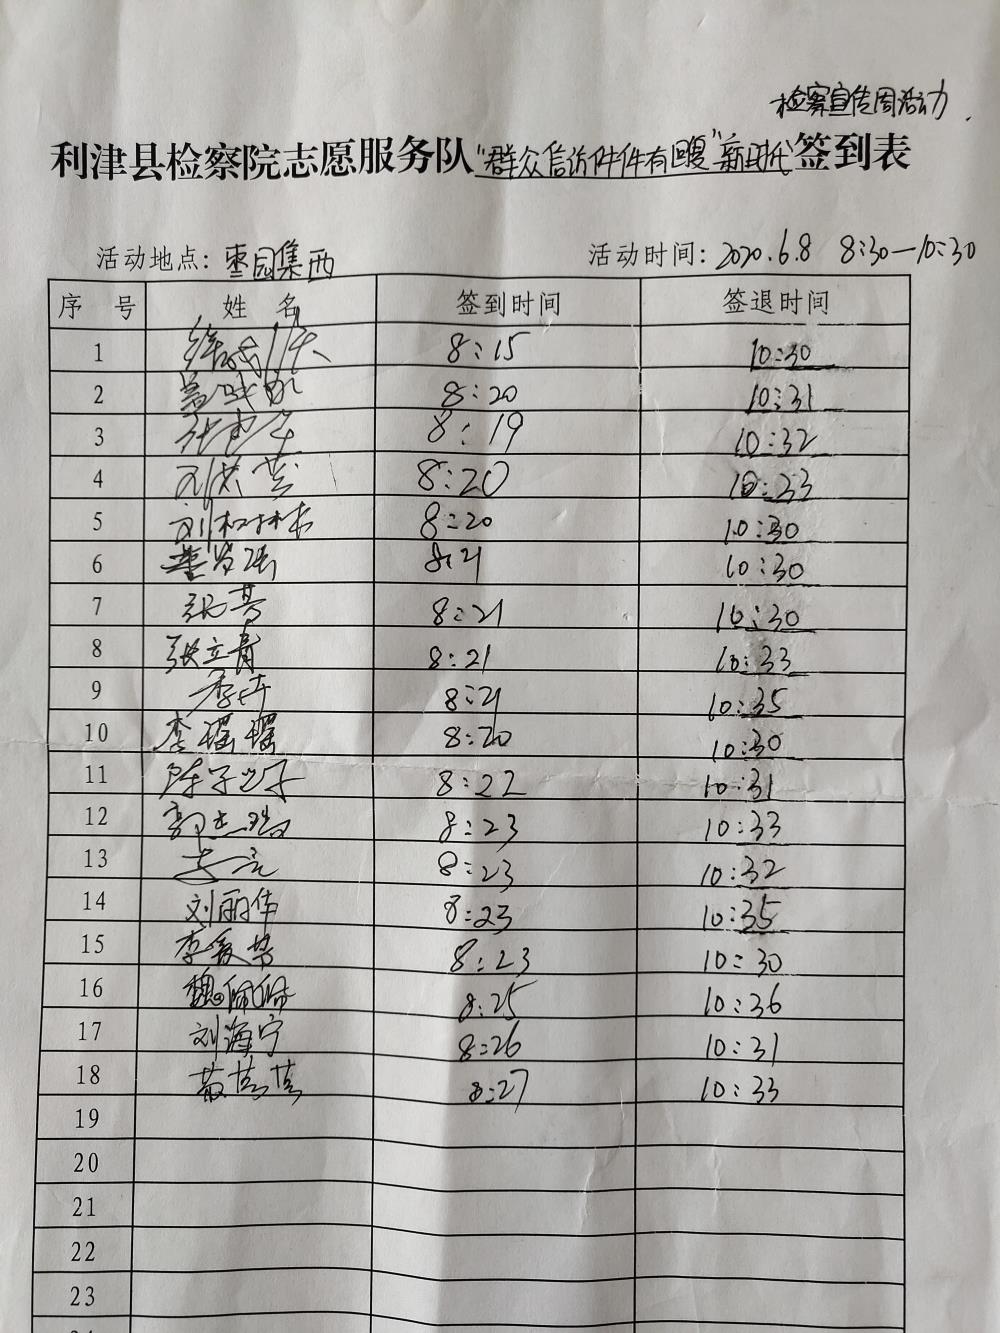 检察宣传周活动
利津县检察院志愿服务队“群众信访件件有回复”新时代签到表
活动地点：枣园集西 活动时间：2020.6.8 8:30—10:30
序号 姓名 签到时间 签退时间
1 8:15 10:30
2 8:20 10:31
3 8:19 10:32
4 8:20 10:33
5 8:20 10:30
6 8:21 10:30
7 8:21 10:30
8 张立青 8:21 10:33
9 8:21 10:35
10 李瑶瑶 8:20 10:30
11 8:22 10:31
12 8:23 10:33
13 8:23 10:32
14 刘丽华 8:23 10:35
15 8:23 10:30
16 魏佩佩 8:25 10:36
17 刘海宁 8:26 10:31
18 8:27 10:33
19
20
21
22
23